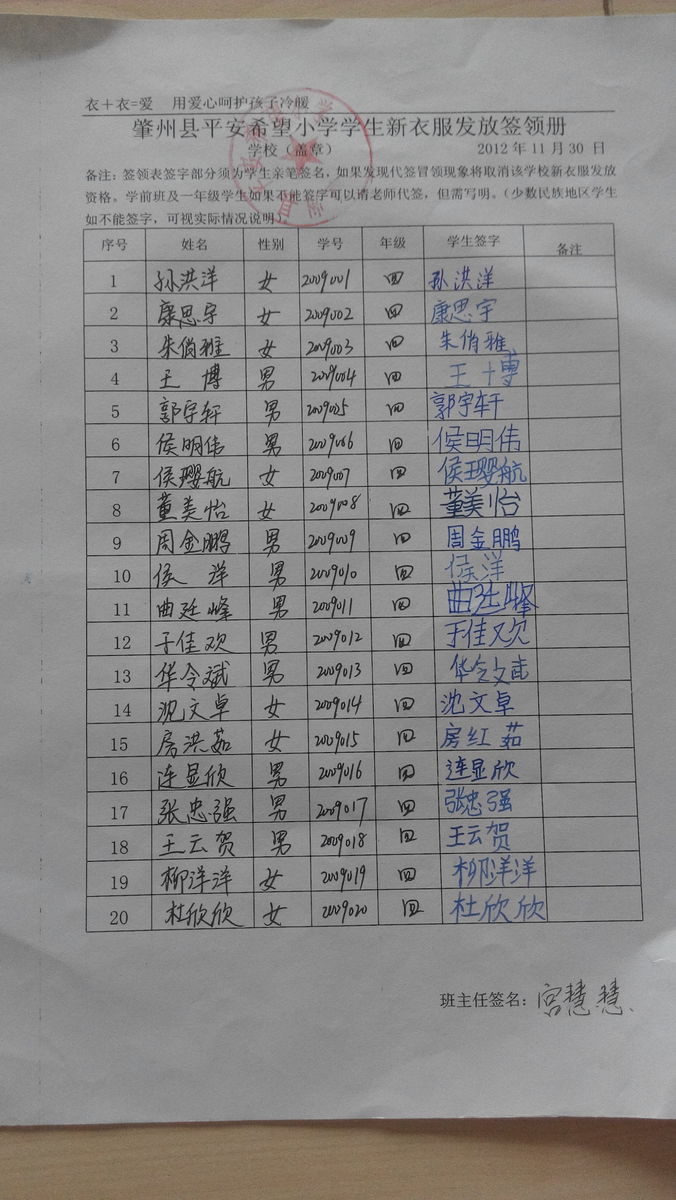 衣＋衣=爱 用爱心呵护孩子冷暖
肇州县平安希望小学学生新衣服发放签领册
学校（盖章） 2012 年 11 月 30 日
备注：签领表签字部分须为学生亲笔签名，如果发现代签冒领现象将取消该学校新衣服发放
资格。学前班及一年级学生如果不能签字可以请老师代签，但需写明。（少数民族地区学生
如不能签字，可视实际情况说明）
序号 姓名 性别 学号 年级 学生签字 备注
1 孙洪洋 女 2009001 四 孙洪洋
2 康思宇 女 2009002 四 康思宇
3 朱俏雅 女 2009003 四 朱俏雅
4 王博 男 2009004 四 王博
5 郭宇轩 男 2009005 四 郭宇轩
6 侯明伟 男 2009006 四 侯明伟
7 侯璎航 女 2009007 四 侯璎航
8 董美怡 女 2009008 四 董美怡
9 周金鹏 男 2009009 四 周金鹏
10 侯洋 男 2009010 四 侯洋
11 曲廷峰 男 2009011 四 曲廷峰
12 于佳欢 男 2009012 四 于佳欢
13 华令斌 男 2009013 四 华令斌
14 沈文卓 女 2009014 四 沈文卓
15 房洪茹 女 2009015 四 房红茹
16 连显欣 男 2009016 四 连显欣
17 张忠强 男 2009017 四 张忠强
18 王云贺 男 2009018 四 王云贺
19 柳洋洋 女 2009019 四 柳洋洋
20 杜欣欣 女 2009020 四 杜欣欣
班主任签名：宫慧慧